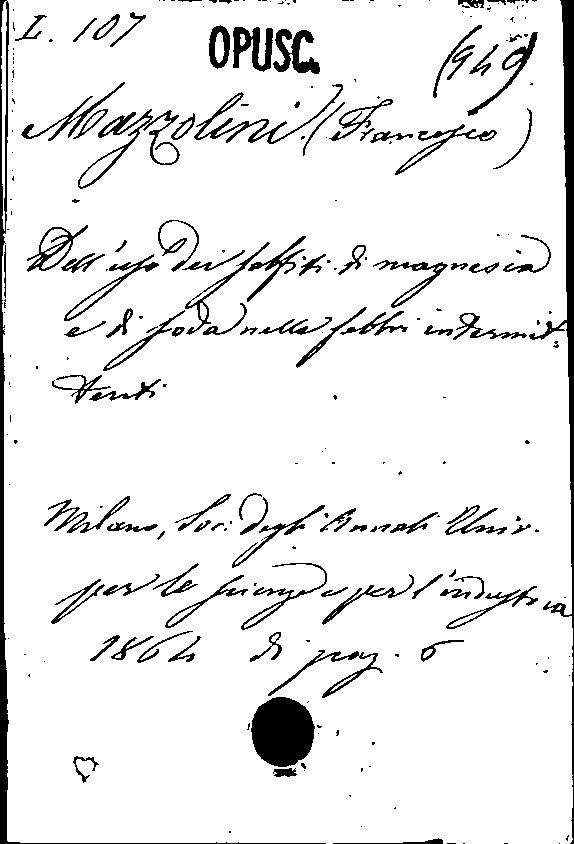 I. 107
OPUSC.
(949)
Mazzolini (Francesco)
Dell'uso dei solfiti di magnesia
e di soda nelle febbri intermit-
tenti
Milano, Soc. degli Annali Univ.
per le scienze e per l'industria
1864 di pag. 6